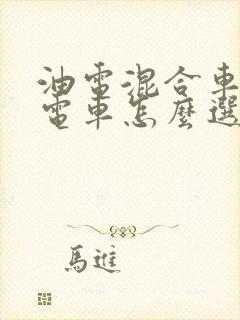 油電混合車
電車怎麼選
馬進